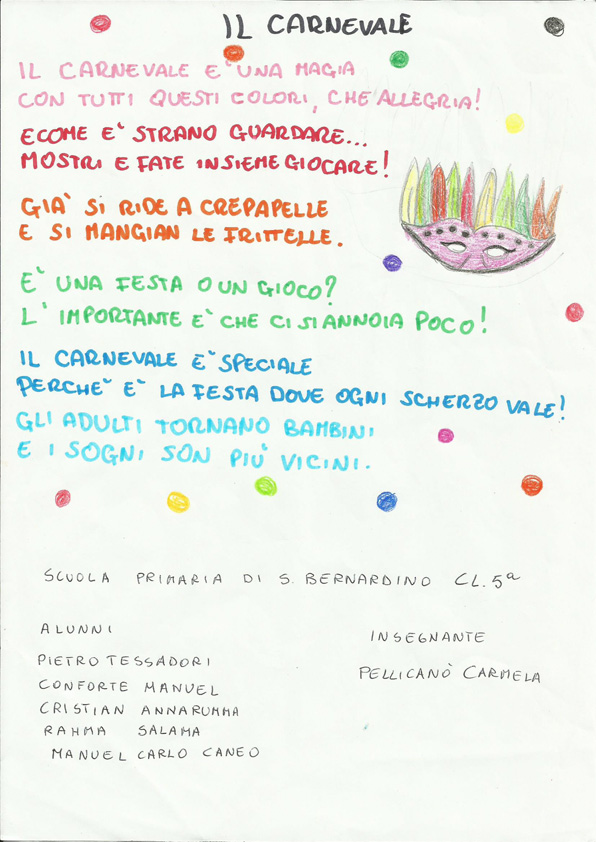 IL CARNEVALE
IL CARNEVALE E` UNA MAGIA
CON TUTTI QUESTI COLORI, CHE ALLEGRIA!
ECOME E` STRANO GUARDARE...
MOSTRI E FATE INSIEME GIOCARE!
GIA` SI RIDE A CREPAPELLE
E SI MANGIAN LE FRITTELLE.
E` UNA FESTA O UN GIOCO?
L' IMPORTANTE E` CHE CI SI ANNOIA POCO!
IL CARNEVALE E` SPECIALE
PERCHE` E` LA FESTA DOVE OGNI SCHERZO VALE!
GLI ADULTI TORNANO BAMBINI
E I SOGNI SON PIU` VICINI.
SCUOLA PRIMARIA DI S. BERNARDINO CL. 5ª
ALUNNI
PIETRO TESSADORI
CONFORTE MANUEL
CRISTIAN ANNARUMMA
RAHMA SALAMA
MANUEL CARLO CANEO
INSEGNANTE
PELLICANÒ CARMELA